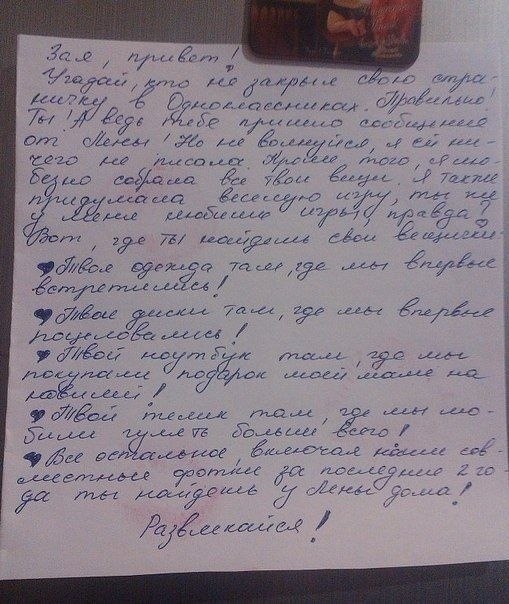 Зая, привет!
Угадай, кто не закрыл свою стра-
ничку в Одноклассниках. Правильно!
Ты! А ведь тебе пришло сообщение
от Лены! Но не волнуйся, я ей ни-
чего не писала. Кроме того, я лю-
безно собрала все твои вещи. Я также
придумала веселую игру, ты же
у меня любишь игры, правда?
Вот, где ты найдешь свои вещички:
♥ Твоя одежда там, где мы впервые
встретились!
♥ Твои диски там, где мы впервые
поцеловались!
♥ Твой ноутбук там, где мы
покупали подарок моей маме на
юбилей!
♥ Твой телик там, где мы лю-
били гулять больше всего!
♥ Все остальное, включая наши сов-
местные фотки за последние 2 го-
да ты найдешь у Лены дома!
Развлекайся!